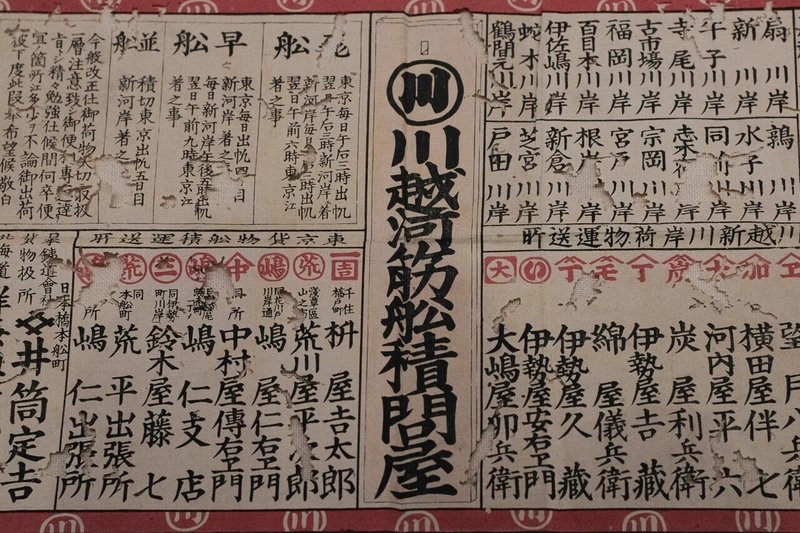 扇川岸
新川岸
牛子川岸
寺尾川岸
古市場川岸
福岡川岸
百目木川岸
伊佐嶋川岸
蛇木川岸
鶴間元川岸
鶉川岸
水子川岸
同前川岸
宗岡川岸
宮戸川岸
根岸川岸
新倉川岸
芝宮川岸
戸田川岸
川越新川岸荷物運送所
横田屋伴七
河内屋平六
炭屋利兵衛
伊勢屋吉藏
綿屋儀兵衛
伊勢屋久藏
伊勢屋安右衛門
大嶋屋卯兵衛
川
川越河筋舩積問屋
飛舩
東京毎日午后三時出帆
翌日午后二時新河岸着
新河岸毎日午后三時出帆
翌日午前六時東京江
着之事
早舩
東京毎日出帆四日目
新河岸着之事
毎日新河岸午後五時出帆
翌日午前九時東京江
着之事
並舩
積切東京出帆五日目
新河岸着之事
今般改正仕御荷物大切取扱
一層注意致シ御便利専ニ達
旨トシ精々勉強仕候間何卒便
宜箇所江多少ヲ不論御出荷
被下度此段奉希望候敬白
東京貨物舩積運送所
千住橋戸町
枡屋吉太郎
浅草區山之宿
荒川屋平次郎
同花川戸川岸通
嶋屋仁右衛門
同所
中村屋傳右衛門
嶋仁支店
同伊勢町川岸
鈴木屋藤七
同本舩町
荒平出張所
嶋仁出張所
日本橋本舩町
井筒定吉
貨物扱所